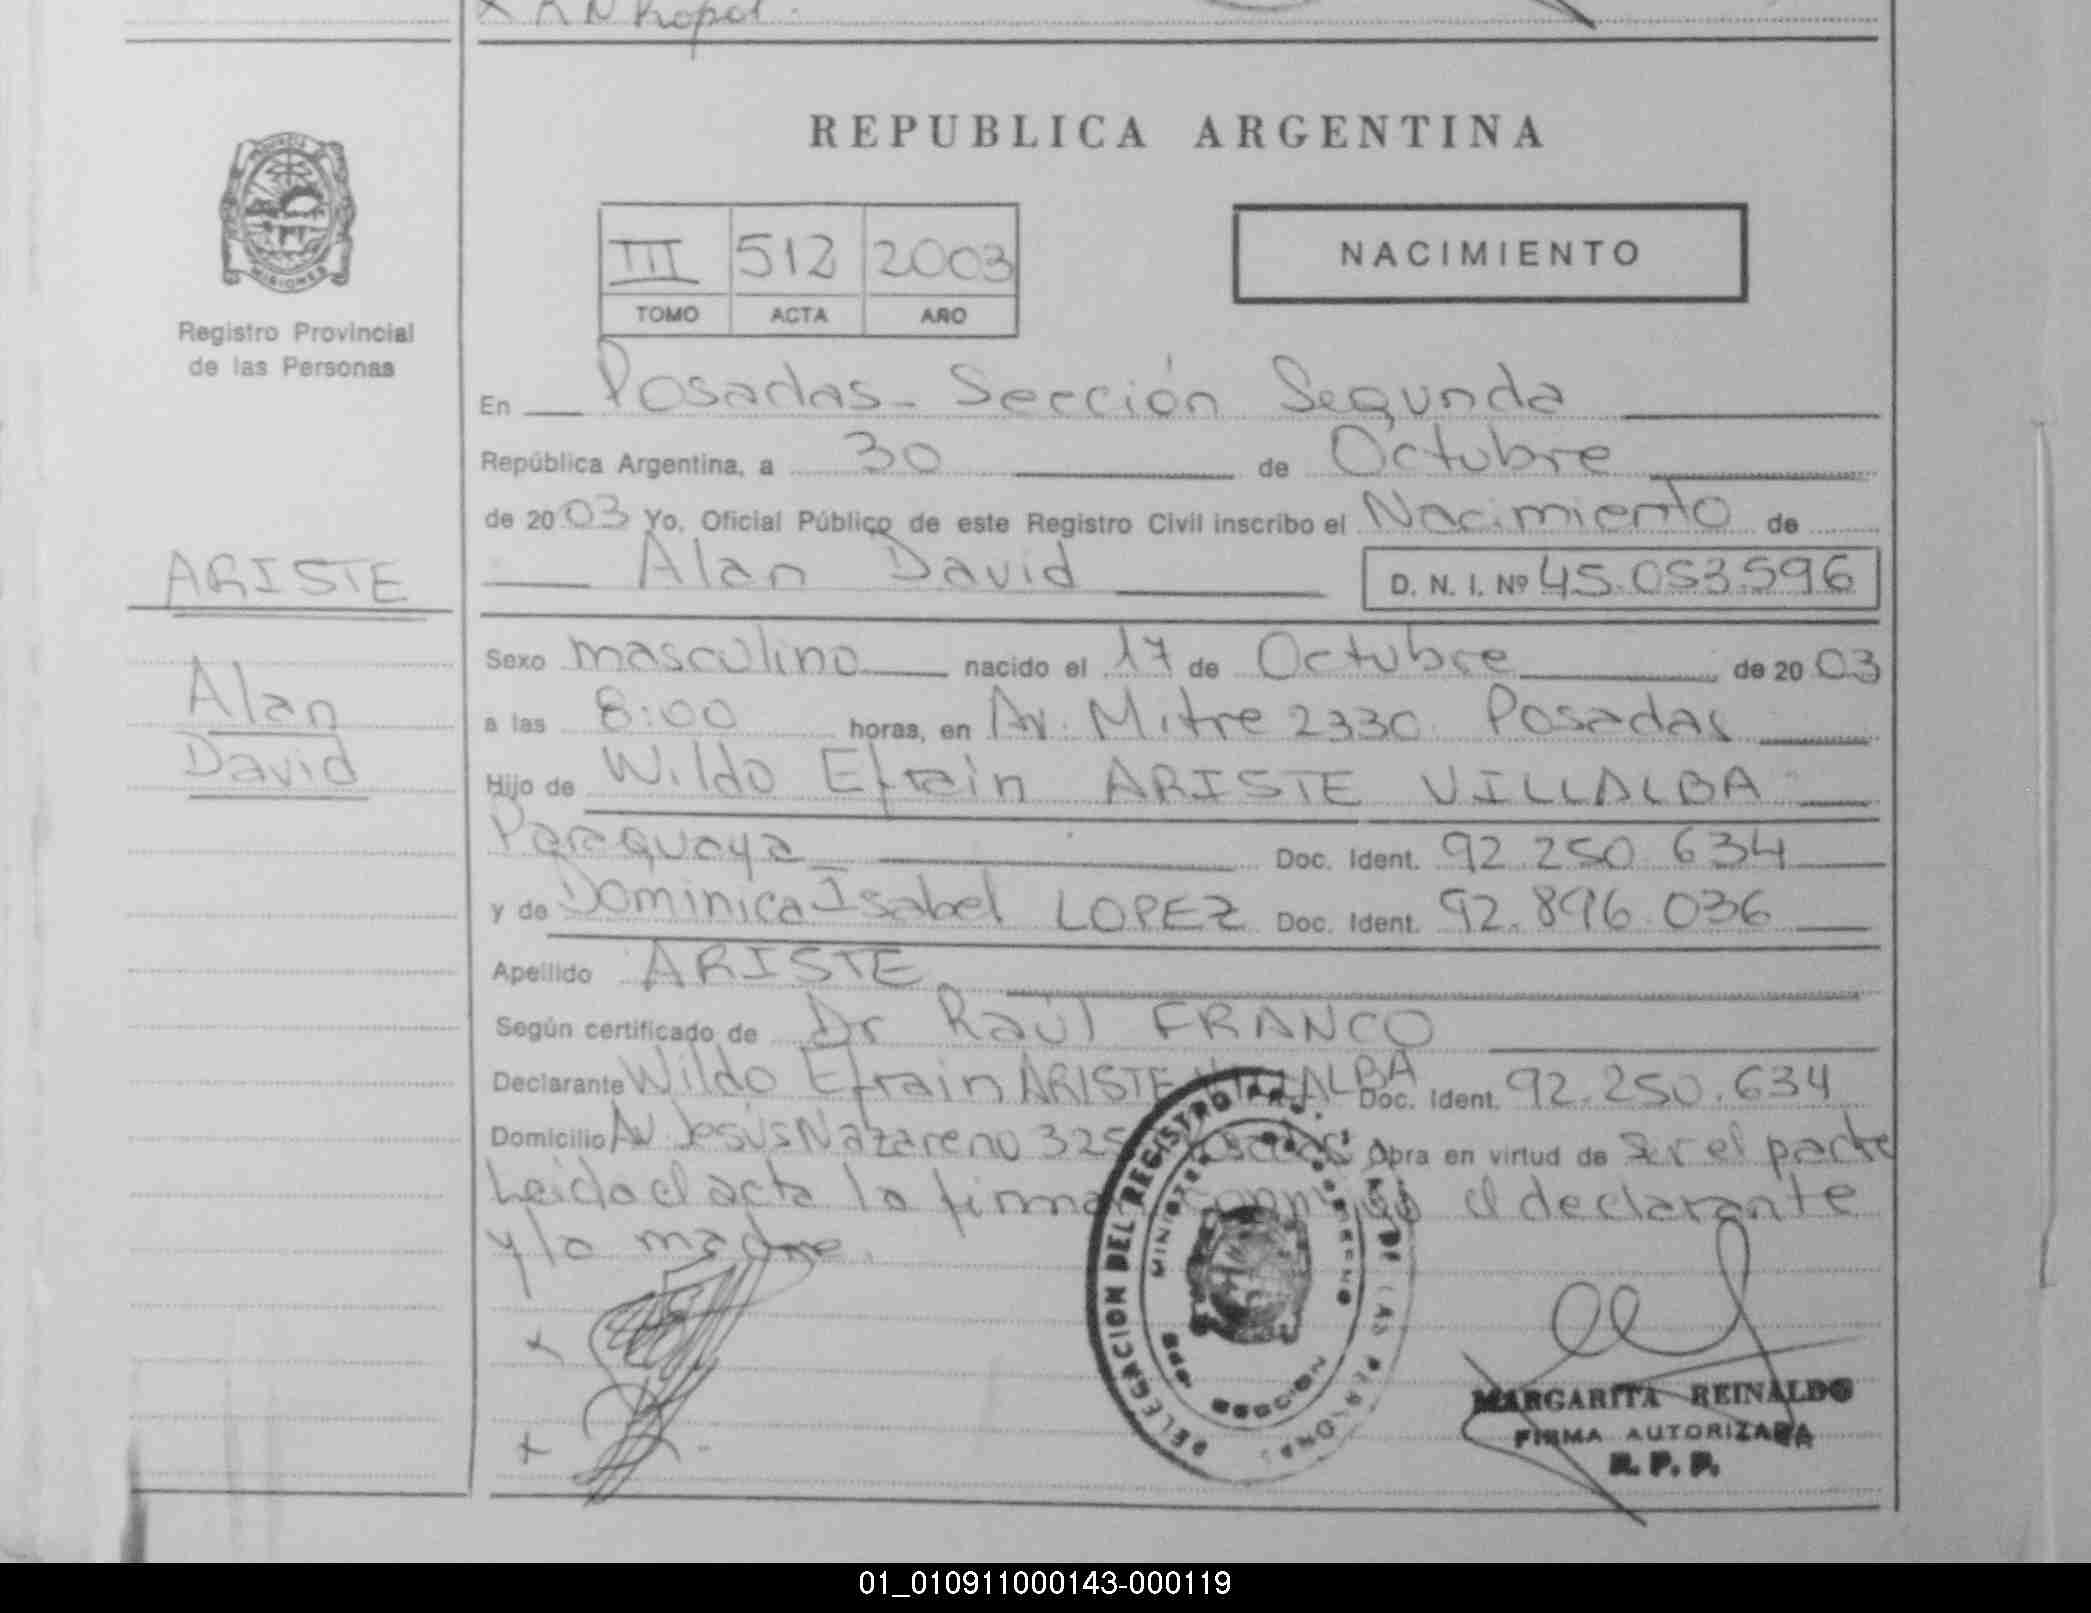 REPUBLICA ARGENTINA
MISIONES
Registro Provincial
de las Personas
III 512 2003
TOMO ACTA AÑO
NACIMIENTO
En Posadas - Sección Segunda
República Argentina, a 30 de Octubre
de 2003 Yo, Oficial Público de este Registro Civil inscribo el Nacimiento de
Alan David D. N. I. Nº 45.053.596
ARISTE
Alan
David
Sexo masculino nacido el 17 de Octubre de 20 03
a las 8:00 horas, en Av. Mitre 2330 Posadas
Hijo de Wildo Efrain ARISTE VILLALBA
Paraguaya Doc. Ident. 92.250.634
y de Dominica Isabel LOPEZ Doc. Ident. 92.896.036
Apellido ARISTE
Según certificado de Dr Raúl FRANCO
Declarante Wildo Efrain ARISTE VILLALBA Doc. Ident. 92.250.634
Domicilio Av Jesús Nazareno Posadas Obra en virtud de ser el parte
Leida el acta la firman conmigo el declarante
y la madre.
DELEGACION DEL REGISTRO DE LAS PERSONAS
MINISTERIO DE GOBIERNO
SECCION
MARGARITA REINALDO
FIRMA AUTORIZADA
R. P. P.
01_010911000143-000119